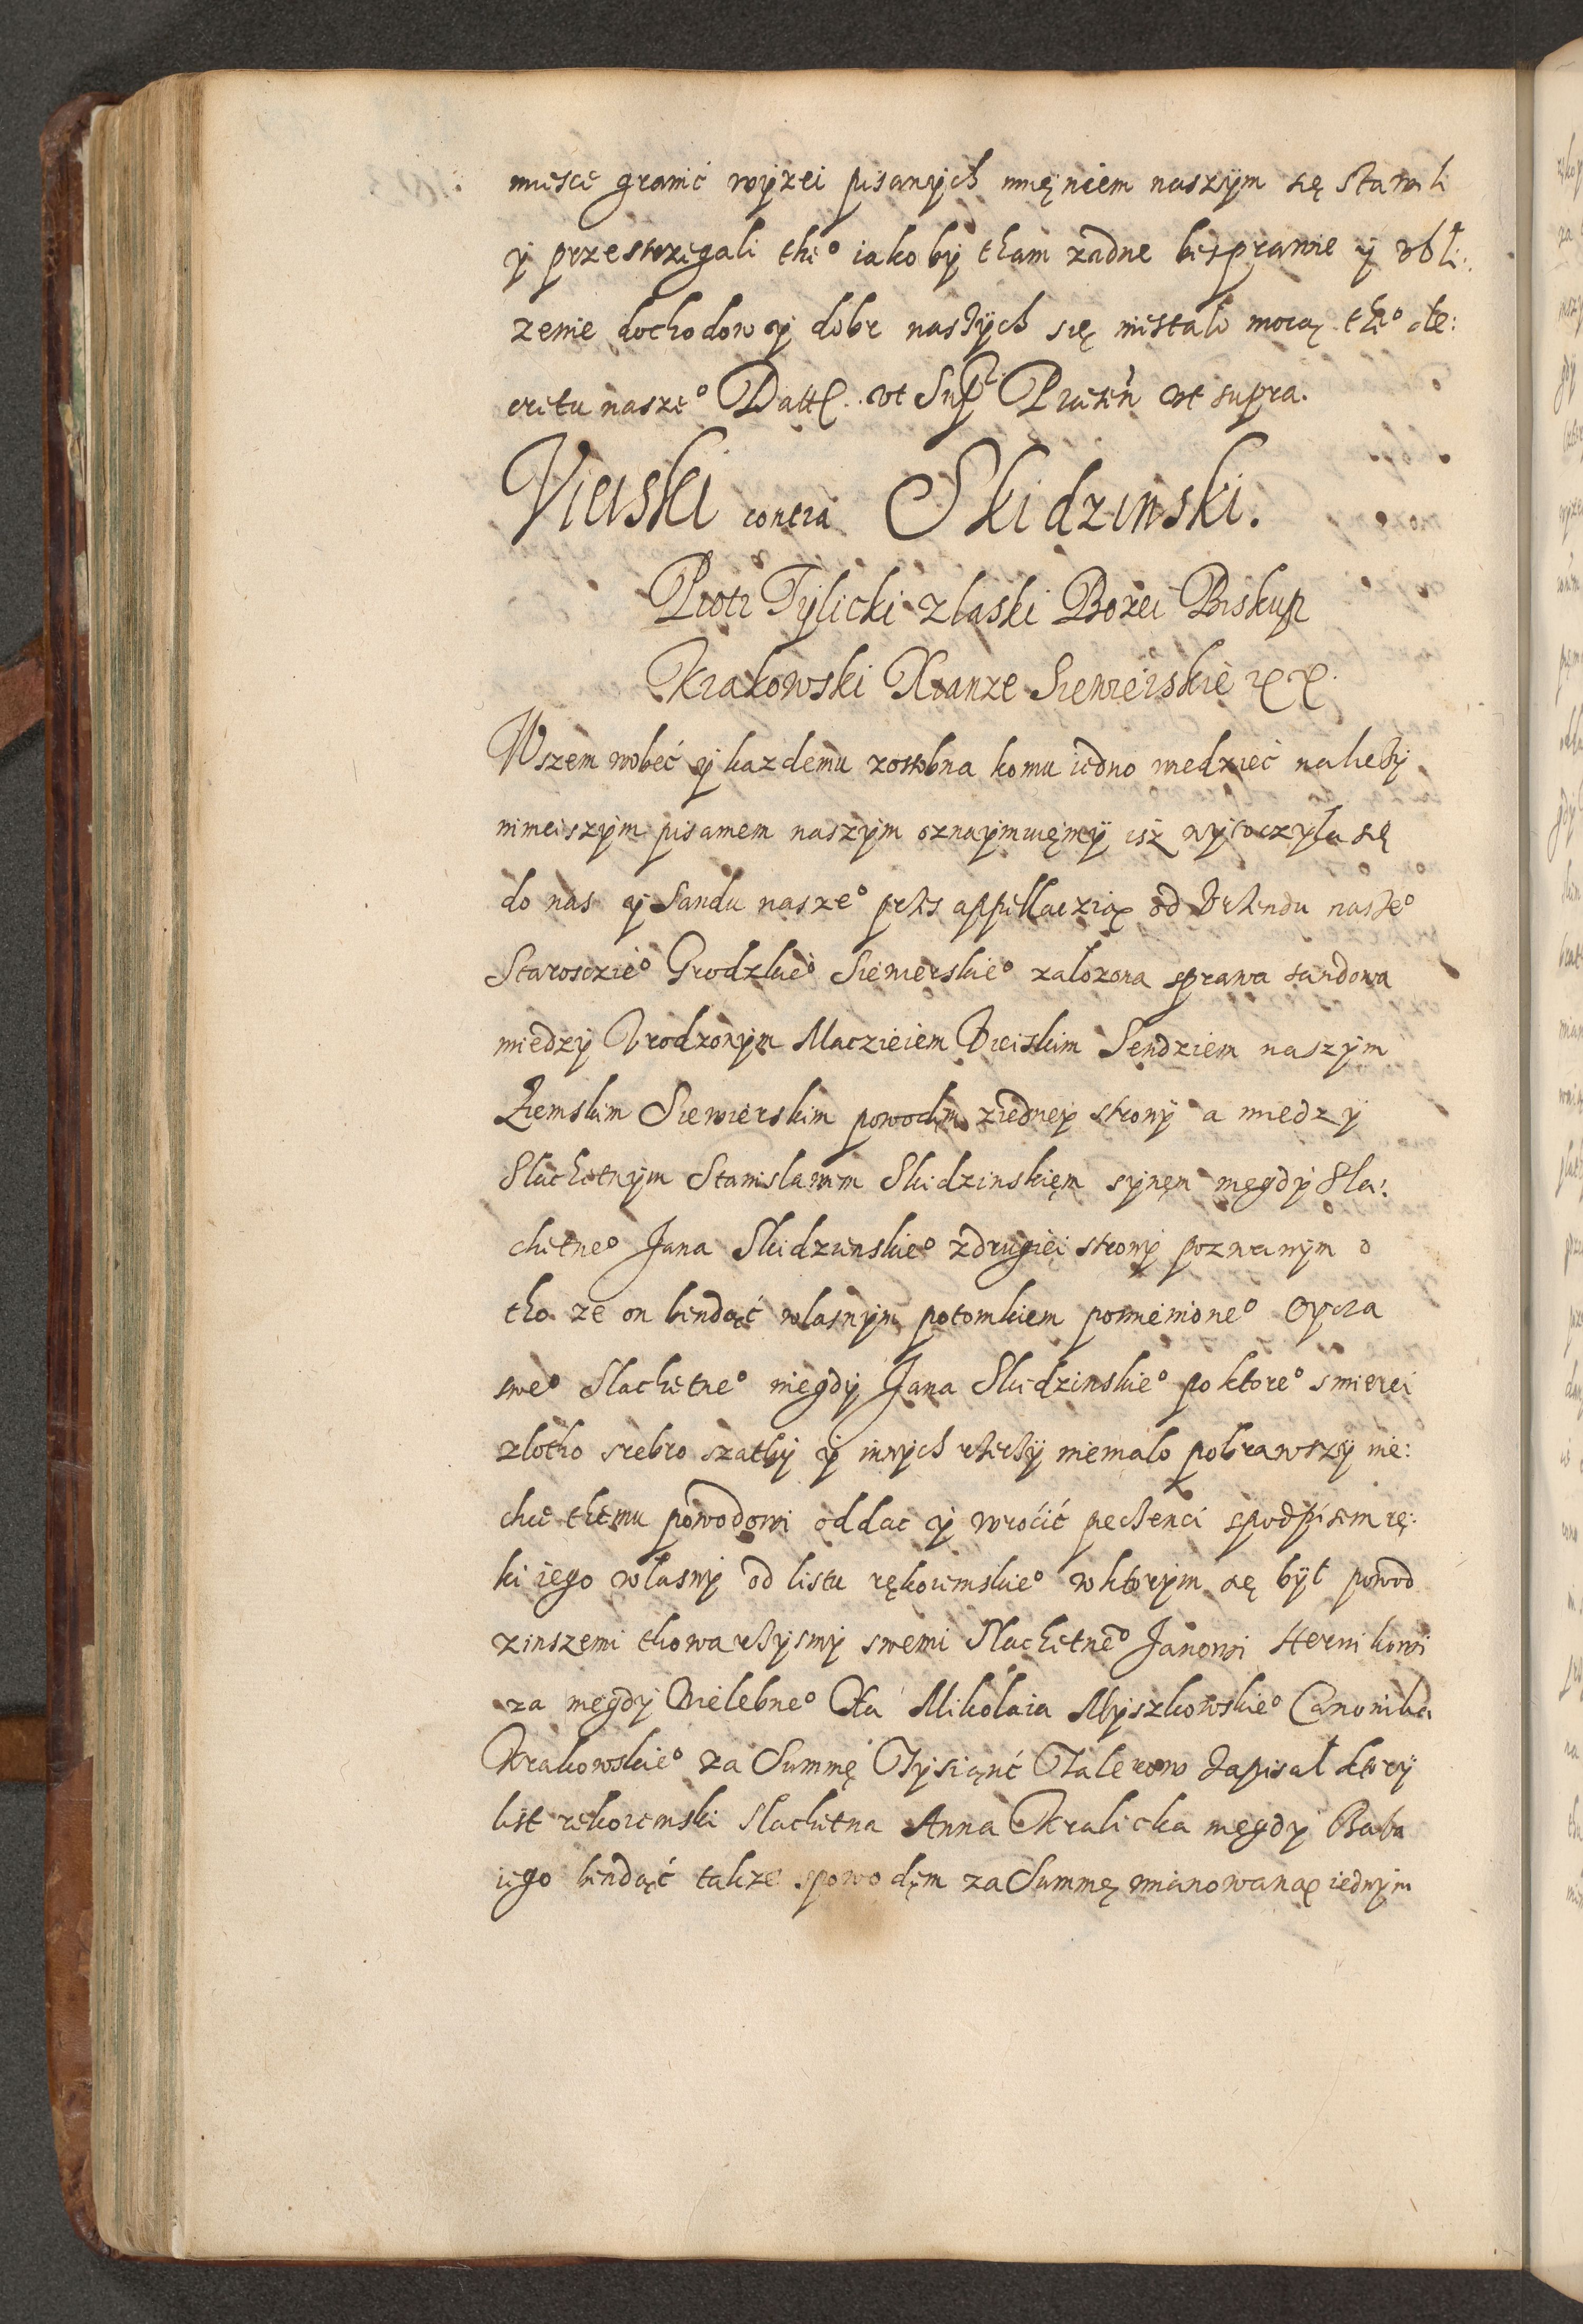 miesce granić wyżei pisanych imięniem naszym się stawili
y przestrzegali the° iakoby tham żadne besprawie y vbli:
zenie dochodow y dobr naszych się niestało mocą the° de:
cretu nasze° Datt. vt Supr. Præsen vt supra.
Vieiski contra Skidzinski.
Piotr Tylicki z laski Bozei Biskup
Krakowski Xianze Siewierskie
Wszem wobeć y kazdemu zossobna komu iedno wiedzieć nalezy
ninieiszym pisaniem naszym oznaymuięmy isz wytoczyła się
do nas y Sandu nasze° przes appellaczią od Vrzendu nasze°
Starosczie° Grodzkie° Siewierskie° zalozona sprawa sandowa
miedzy Vrodzonym Maczieiem Vieiskim Sendziem naszym
Ziemskim Siewierskim powodęm ziednej strony a miedzy
Slachetnym Stanislawem Skidzinskięm synęm niegdy Sla:
chetne° Jana Skidzinskie° zdrugiei strony pozwanym o
tho ze on bendąć wlasnym potomkiem pomienione° Oycza
swe° Slachetne° niegdy Jana Skidzinskie° po ktore° smierci
zlotho srebro szathy y innych rzeczy niemalo pobrawszy nie:
chce themu powodowi oddac y wrócić pieczenci spodpisem rę:
ki iego wlasny od listu rękoiemskie° wktorym się był powod
zinszemi thowarzysmy swemi Slachetne° Janowi Hernikowi
za niegdy Wielebne° Xa Mikólaia Myszkowskie° Canonika
Krakowskie° za Summę Tysiąnć Talerow zapisał ktory
list rekoiemski Slachetna Anna Kralicka niegdy Baba
iego bendąć takze spowodęm za Summę mianowaną iednym